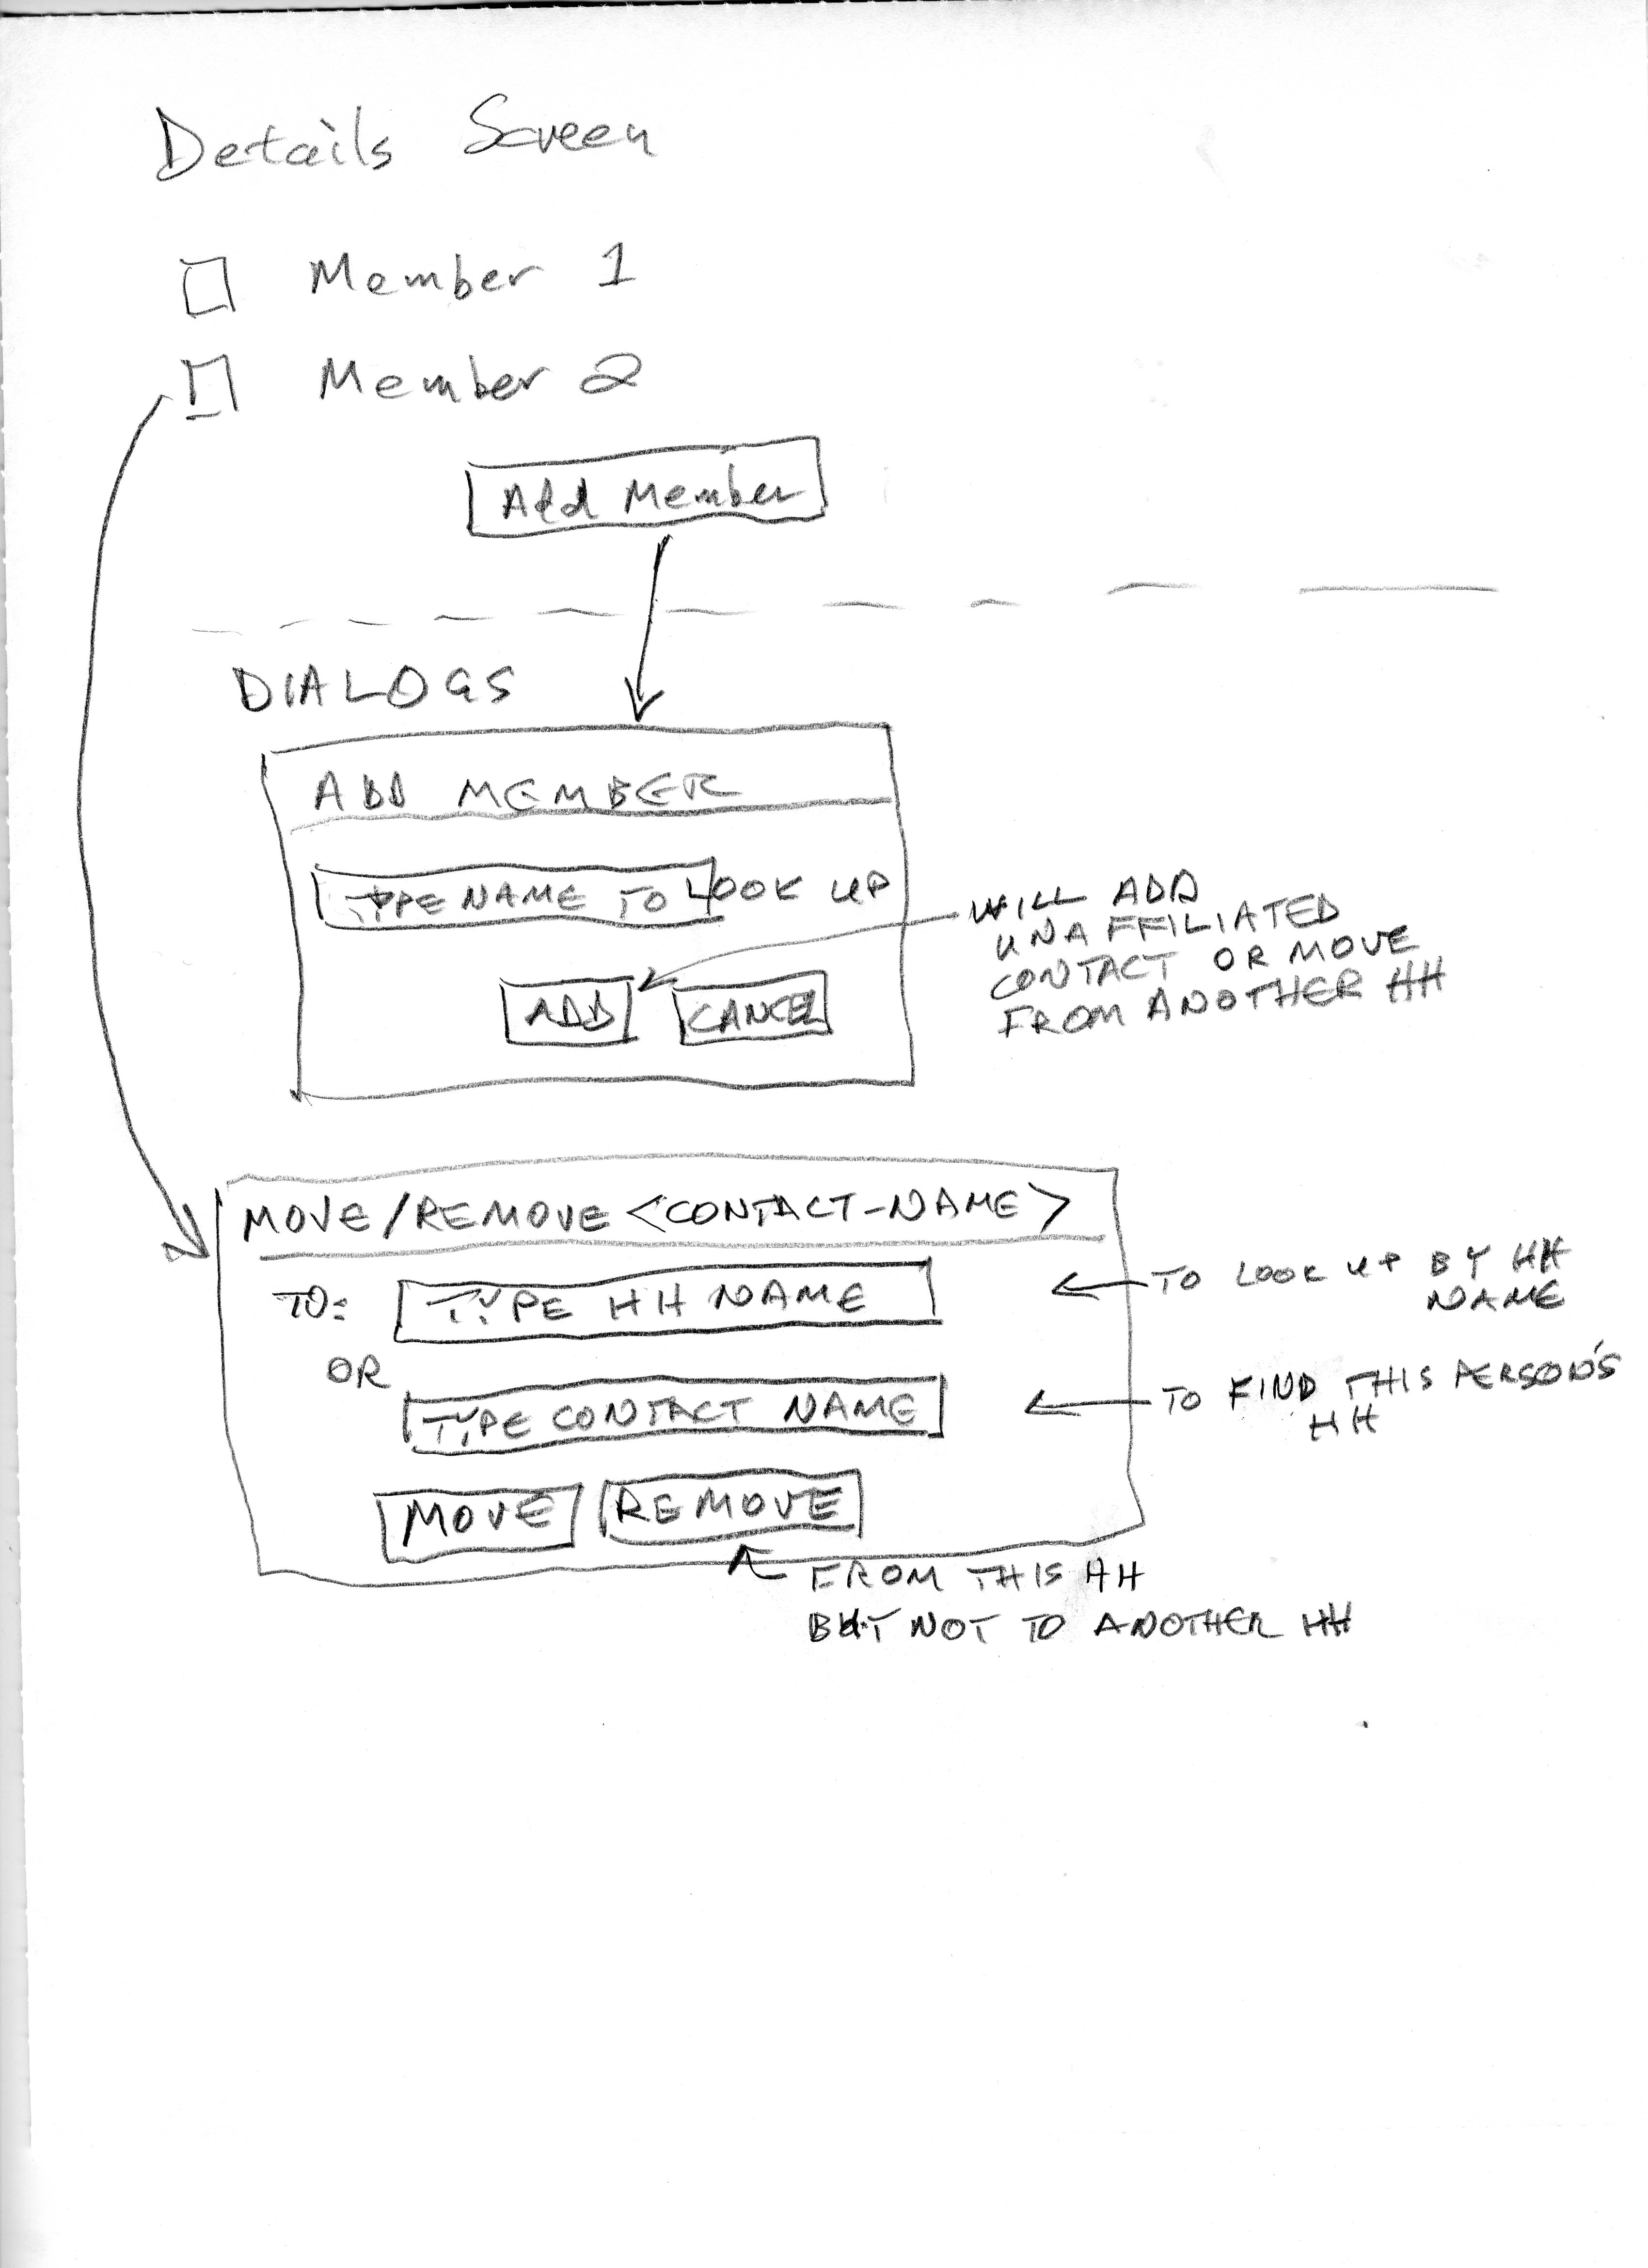 Details Screen
Member 1
Member 2
Add Member
DIALOGS
ADD MEMBER
TYPE NAME TO LOOK UP
ADD CANCEL
WILL ADD
UNAFFILIATED
CONTACT OR MOVE
FROM ANOTHER HH
MOVE/REMOVE <CONTACT-NAME>
TO: TYPE HH NAME
TO LOOK UP BY HH
NAME
OR
TYPE CONTACT NAME
TO FIND THIS PERSON'S
HH
MOVE REMOVE
FROM THIS HH
BUT NOT TO ANOTHER HH